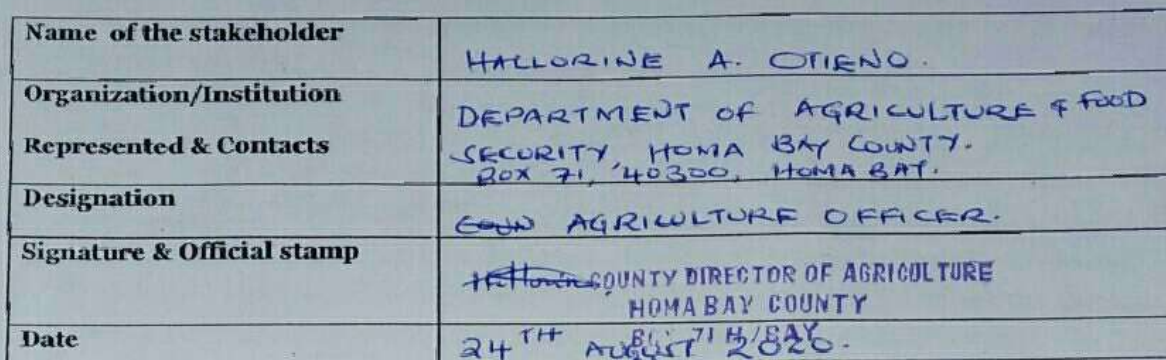 Name of the stakeholder
HALLORINE A. OTIENO.
Organization/Institution
Represented & Contacts
DEPARTMENT OF AGRICULTURE & FOOD
SECURITY, HOMA BAY COUNTY.
BOX 71, 40300, HOMA BAY.
Designation
AGRICULTURE OFFICER.
Signature & Official stamp
COUNTY DIRECTOR OF AGRICULTURE
HOMA BAY COUNTY
BOX 71 H/BAY
Date
24TH AUGUST 2020.